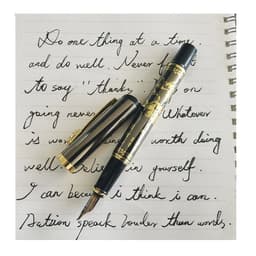 Do one thing at a time.
and do well. Never
to say "thanks" on
going never Whatever
is worth doing
well in yourself.
I can because i think i can.
speack louder than words.